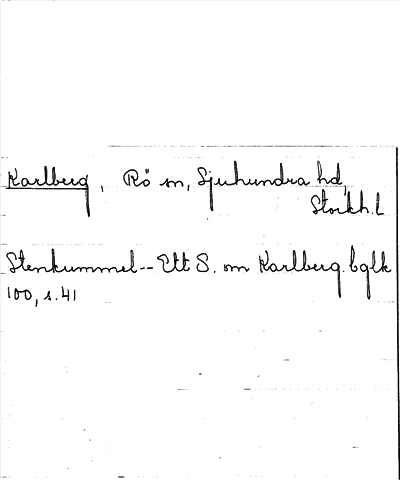 Karlberg, Rö sn, Sjuhundra hd,
Stockh. l
Stenkummel -- Ett S. om Karlberg. bglk
100, s. 41